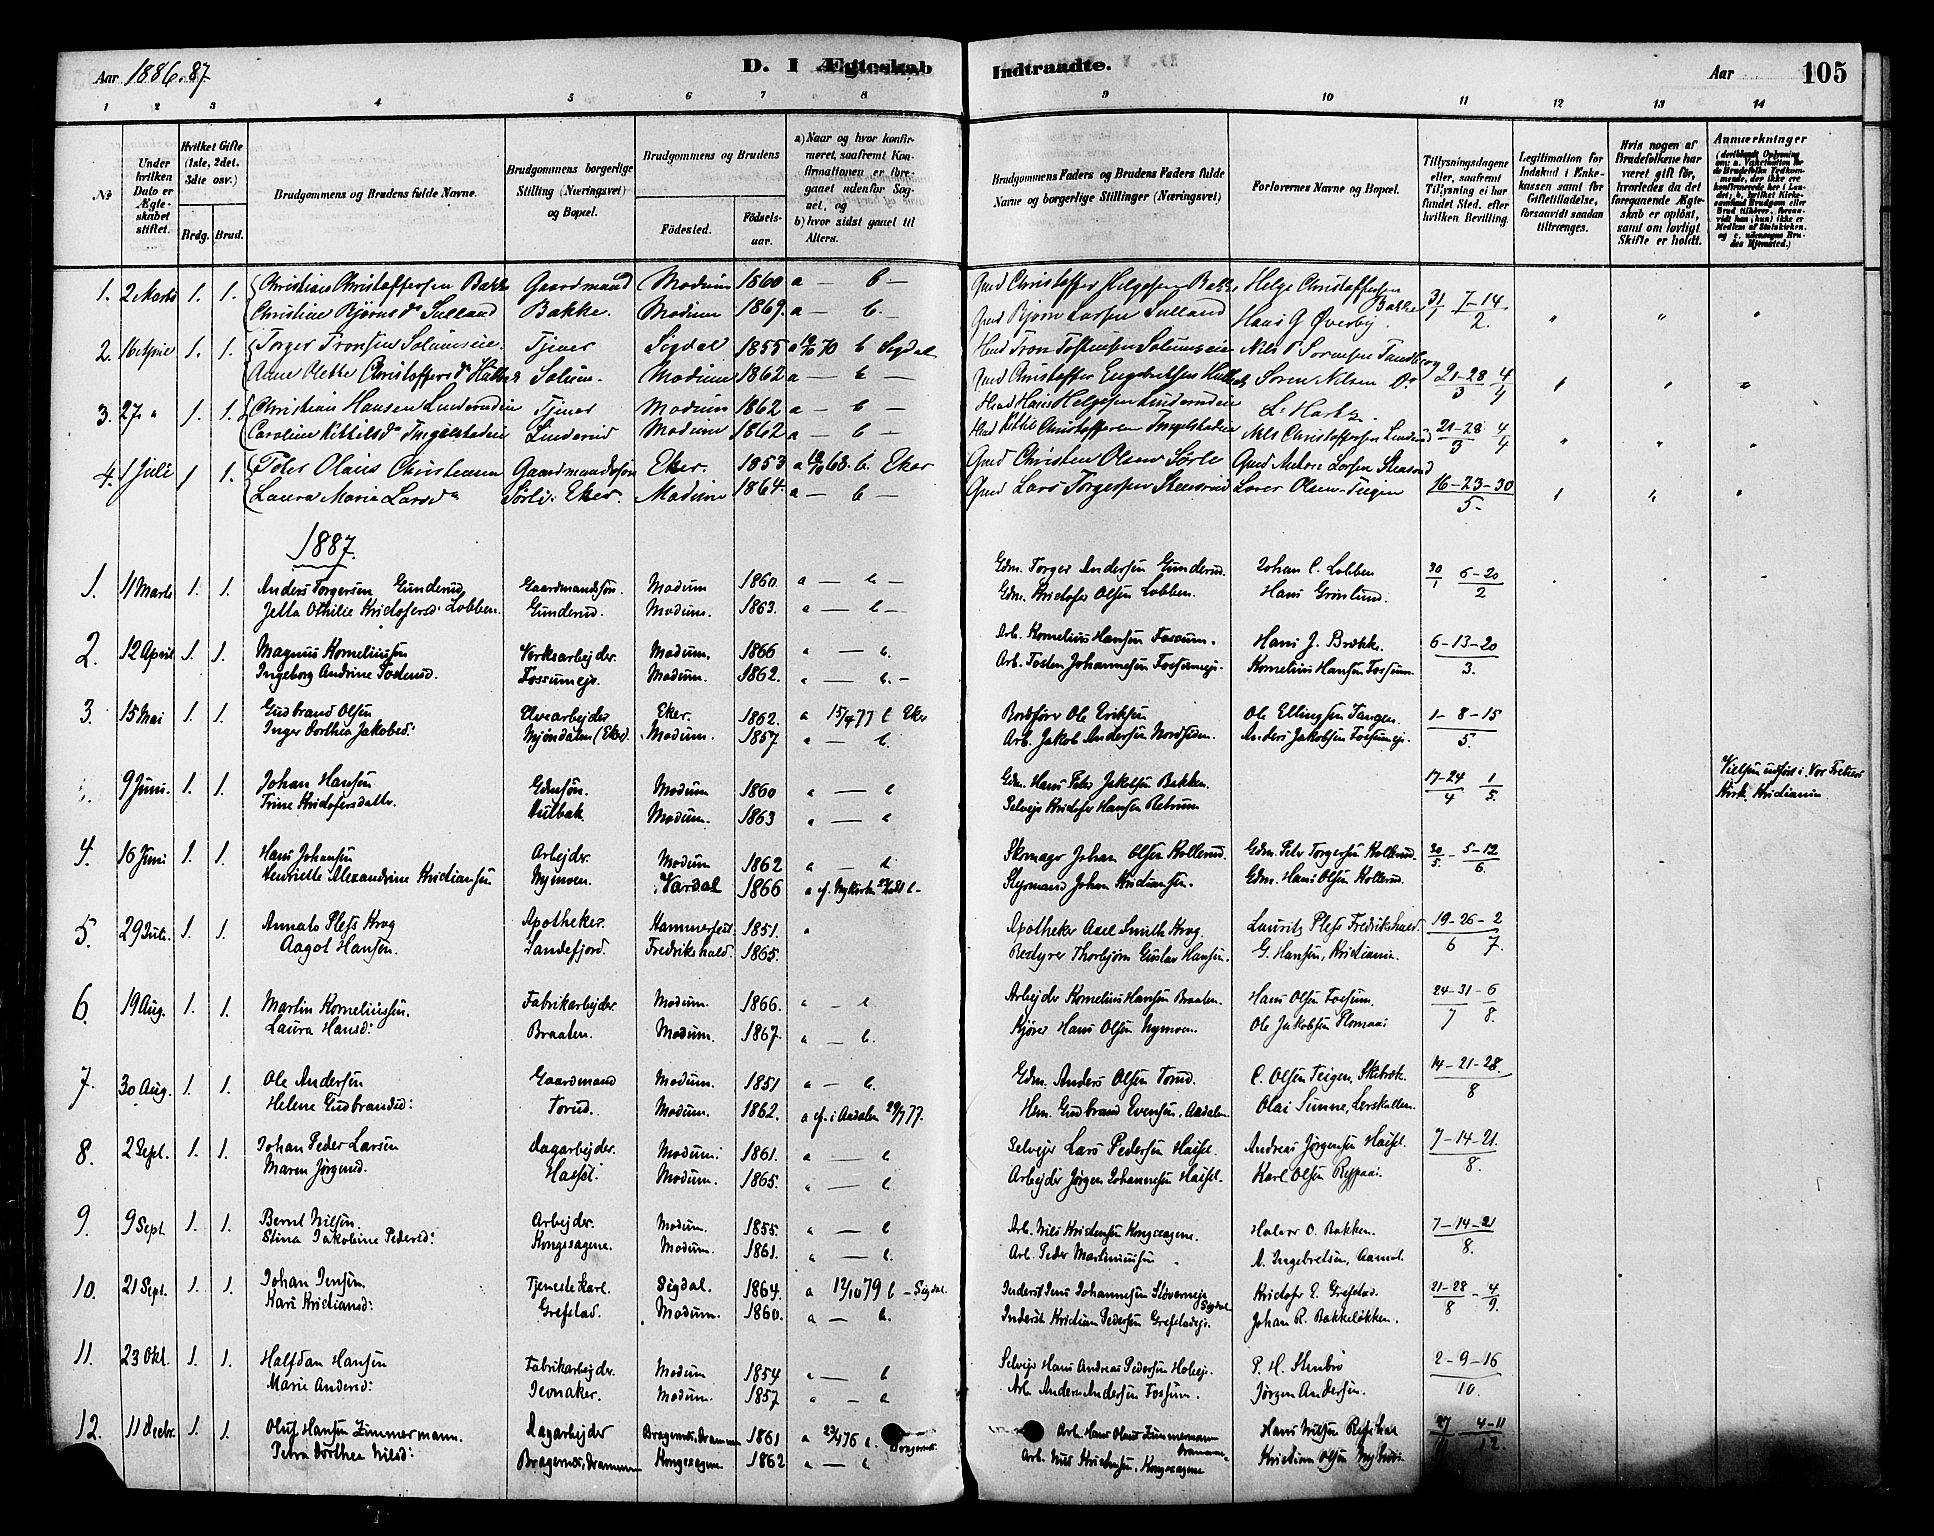 Aar 1886-87
D. I Ægteskab Indtraadte.
Aar 105
1 2 3 4 5 6 7 8 9 10 11 12 13 14
No
Under hvilken Dato er Ægteskabet stiftet.
Hvilket Gifte (1ste, 2det, 3die osv.)
Brdg. Brud.
Brudgommens og Brudens fulde Navne.
Brudgommens borgerlige Stilling (Næringsvei) og Bopæl.
Brudgommens og Brudens
Fødested. Fødselsaar.
a) Naar og hvor konfirmeret, saafremt Konfirmationen er foregaaet udenfor Sognet, og
b) hvor sidst gaaet til Alters.
Brudgommens Faders og Brudens Faders fulde Navne og borgerlige Stillinger (Næringsvei)
Forlovernes Navne og Bopæl.
Tillysningsdagene eller, saafremt Tillysning ei har fundet Sted, efter hvilken Bevilling.
Legitimation for Indskud i Enkekassen samt for Giftetilladelse, forsaavidt saadan tiltrænges.
Hvis nogen af Brudefolkene har været gift før, hvorledes da det foregaaende Ægteskab er opløst, samt om lovligt Skifte er holdt.
Anmærkninger
1. 2 Marts 1. 1. Christian Christoffersen Bakke Gaardmand Modum 1860 a — b — Gmd Christoffer Helgesen Bakke Helge Christoffersen Bakke 31/1 7-14/2
Christine Bjørnsd. Sulland Bakke. Modum 1869. a — b. — Gmd Bjørn Larsen Sulland Hans G Øverby.
2. 16 April 1. 1. Torger Tronsen Solumseie Tjener Sigdal 1855 70 b Sigdal Hmd Tron Tostensen Solumseie Nils P Sørensen Tandberg 21-28/3 4/4
Anne Olette Christoffersd. Solum. Modum 1862 a — b — Gmd Christoffer Engebretsen Søren Nilsen
3. 27 " 1. 1. Christian Hansen Linderudeie Tjener Modum 1862 a — b — Hmd Hans Helgesen Linderudeie 21-28/3 4/4
Caroline Kittilsd. Linderud Modum 1862 a — b — Hmd Kittil Christoffersen Nils Christoffersen Linderud
4. 1 Juli 1 1. Olaus Christensen Gaardmandssøn Eker. 1853 68. b. Eker Gmd Christen Olsen Sørle Gmd Anders Larsen Stensrud 16-23-30/5
Laura Marie Larsd. Sørli. Eker. Modum 1864. a — b — Gmd Lars Torgersen Stensrud Olsen Teigen
1887.
1. 11 Marts 1. 1. Anders Torgersen Gunderud Gaardmandssøn. Modum 1860. a — b — Gdm. Torger Andersen Gunderud. Johan C. Lobben 30/1 6-20/2
Jetta Othilie Kristofersd. Lobben. Gunderud. Modum. 1863. a — b — Gdm. Kristofer Olsen Lobben. Hans Grønlund.
2. 12 April 1. 1. Magnus Korneliussen Verksarbejder. Modum. 1866 a — b. Arb. Kornelius Hansen Fossum. Hans J. Brække. 6-13-20/3.
Ingeborg Andrine Tostensd. Fossumeje. Modum. 1862. a — b. — Arb. Tosten Johannesen Fossumeje. Kornelius Hansen Fossum.
3 15 Mai 1. 1. Gudbrand Olsen Elvearbejder Eker. 1862. a 15/4 77 b Eker Ole Eriksen Ole Ellingsen Tangen. 1-8-15/5.
Inger Dorthea Jakobsd: Mjøndalen (Eker). Modum 1857 a — b. Arb. Jakob Andersen Nordsiden. Anders Jakobsen Fossumeje.
9 Juni. 1. 1. Johan Hansen Gdmsøn. Modum 1860 a — b Gdm. Hans Peter Jakobsen Bakken. 17-24/4 1/5. Vielsen udført i Vor Frelsers Kirke, Kristiania.
Trine Kristofersdatter. Hulbak Modum. 1863 a — b Selvejer Kristofer Hansen
4. 16 Juni 1. 1. Hans Johansen Arbejder. Modum 1862 a — b Skomager Johan Olsen Kollerud. Gdm. Peter Torgersen Kollerud. 30/5 5-12/6.
Henriette Alexandrine Kristiansen Nymoen. Vardal 1866 Nykirke Styrmand Johan Kristiansen. Gdm. Hans Olsen Kollerud.
5. 29 Juli. 1. 1. Annato Pless Krog Apotheker. Hammerfest. 1851. a Apotheker Axel Smith Krog. Lauritz Pless Fredrikshald. 19-26/6 2/7.
Aagot Hansen. Sandefjord. Fredrikshald. 1865. Bestyrer Thorbjørn Gustav Hansen. G. Hansen, Kristiania.
6. 19 Aug. 1. 1. Martin Korneliussen. Fabrikarbejder. Modum. 1866. a — b Arbejder Kornelius Hansen Braaten. Hans Olsen Fossum. 24-31/7 6/8.
Laura Hansd: Braaten. Modum. 1867. a — b. Kjører Hans Olsen Nymoen. Ole Jakobsen
7. 30 Aug. 1. 1. Ole Andersen Gaardmand Modum. 1851 a — b. Gdm. Anders Olsen Torud. C. Olsen Teigen, 14-21-28./8
Helene Gudbrandsd: Torud. Modum. 1862. a cf. i Aadalen 77. Hsm. Gudbrand Evensen, Aadalen Olai Sunne, Lerskallen.
8. 2 Sept. 1. 1. Johan Peder Larsen Dagarbejder. Modum. 1861. a — b Selvejer Lars Pedersen Hassel. Andreas Jørgensen Hassel. 7-14-21./8.
Maren Jørgensd. Hassel. Modum. 1865. a — b. Arbejder Jørgen Johannesen Hassel. Karl Olsen
9. 9 Sept. 1. 1. Bernt Nilsen. Arbejder. Modum. 1855. a — b Arb. Nils Kristensen Kongssagene. Halvor O. Bakken. 7-14-21/8.
Stina Jakobine Pedersd: Kongssagene. Modum. 1861. a — b. Arb. Peder Martinussen " A. Ingebretsen, Aamot.
10. 21 Sept. 1. 1. Johan Jensen Tjenestekarl. Sigdal. 1864. a 12/10 79 b — Sigdal. Inderst Jens Johannesen Sigdal Kristofer E. Grefstad. 21-28/8 4/9.
Kari Kristiansd: Grefstad. Modum. 1860. a — b. Inderst Kristian Pedersen Grefstadeje. Johan R. Bakkeløkken.
11. 23 Okt. 1. 1. Halfdan Hansen Fabrikarbejder. Modum 1854 a — b Selvejer Hans Andreas Pedersen P. H. Stenbro 2-9-16/10.
Marie Andersd: Modum. 1857 a — b Arb. Anders Andersen Fossum. Jørgen Andersen.
12. 11 Decbr. 1. 1. Oluf Hansen Zimmermann. Dagarbejder Bragernes, Drammen 1861 76 b. Bragernes. Arb. Hans Olsen Zimmermann Drammen Hans Nilsen 27/11 4-11/12.
Petra Dorthea Nilsd: Bragernes, Drammen Kongssagene 1862 a — b Arb. Nils Kristensen, Kongssagene Kristian Olsen